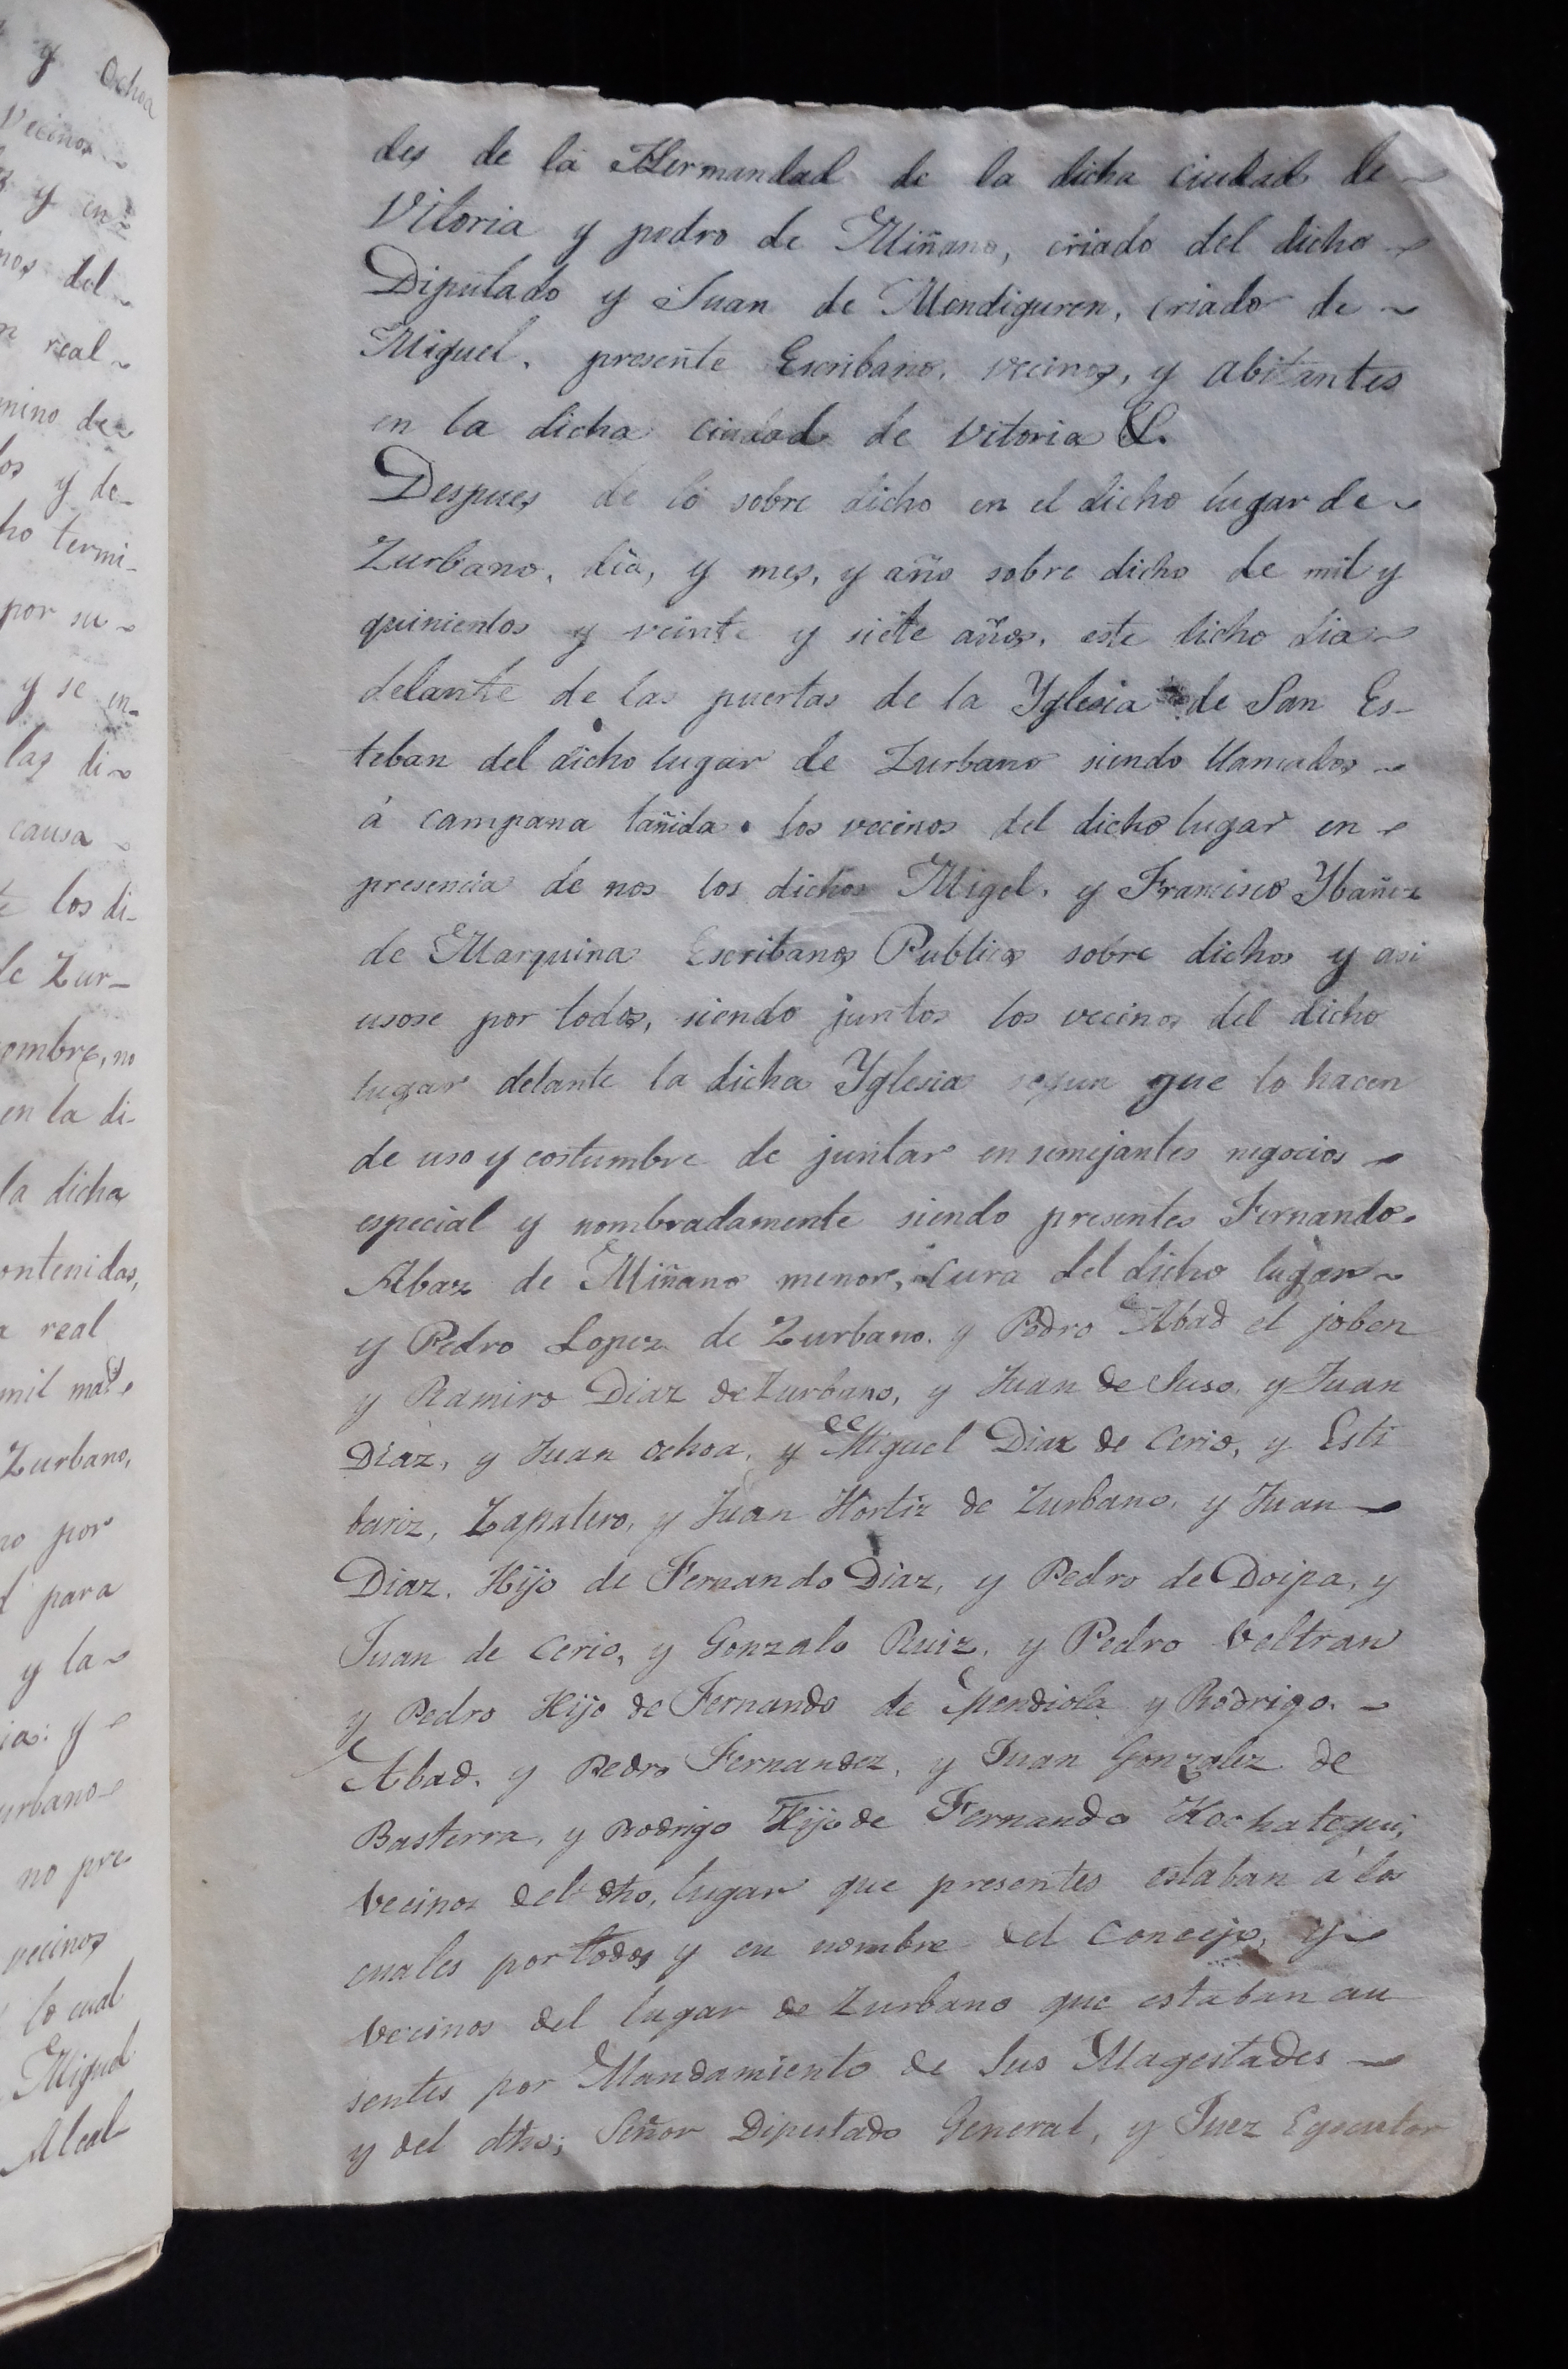 y Ochoa
Vecinos
y en
nos del
n real
mino de
los y de
ho termi-
por su
y se en-
las di
causa
te los di-
de Zur-
ombre, no
en la di-
la dicha
ontenidas,
a real
mil
Zurbano,
no por
para
y la
ia: y
urbano
no pre
vecinos
lo cual
Miguel
Alcal
des de la Hermandad de la dicha ciudad de
Vitoria y pedro de Miñano, criado del dicho
Diputado y Juan de Mendiguren, criado de
Miguel, presente Escribano, vecinos, y abitantes
en la dicha ciudad de Vitoria &.
Despues de lo sobre dicho en el dicho lugar de
Zurbano, dia, y mes, y año sobre dicho de mil y
quinientos y veinte y siete años, este dicho dia
delante de las puertas de la Yglesia de San Es-
teban del dicho lugar de Zurbano siendo llamados
á campana tañida. los vecinos del dicho lugar en
presencia de nos los dichos Migel, y Francisco Ybañez
de Marquina Escribanos Publicos sobre dichos y asi
usose por todos, siendo juntos los vecinos del dicho
lugar delante la dicha Yglesia segun que lo hacen
de uso y costumbre de juntar en semejantes negocios
especial y nombradamente siendo presentes Fernando
Abaz de Miñano menor, cura del dicho lugar
y Pedro Lopez de Zurbano. y Pedro Abad el joben
y Ramiro Diaz de Zurbano, y Juan de Suso, y Juan
Diaz, y Juan Ochoa, y Miguel Diaz de Cerio, y Esti
bariz, Zapatero, y Juan Hortiz de Zurbano, y Juan
Diaz, Hijo de Fernando Diaz, y Pedro de Doipa, y
Juan de Cerio, y Gonzalo Ruiz, y Pedro Veltran
y Pedro Hijo de Fernando de Mendiola y Rodrigo.
Abad, y Pedro Fernandez, y Juan Gonzalez de
Basterra, y Rodrigo Hijo de Fernando Hochategui,
vecinos del dho, lugar que presentes estaban á los
cuales por todos y en nombre del Concejo, y
vecinos del lugar de Zurbano que estaban au
sentes por Mandamiento de Sus Magestades
y del dho; Señor Diputado General, y Juez Egecutor